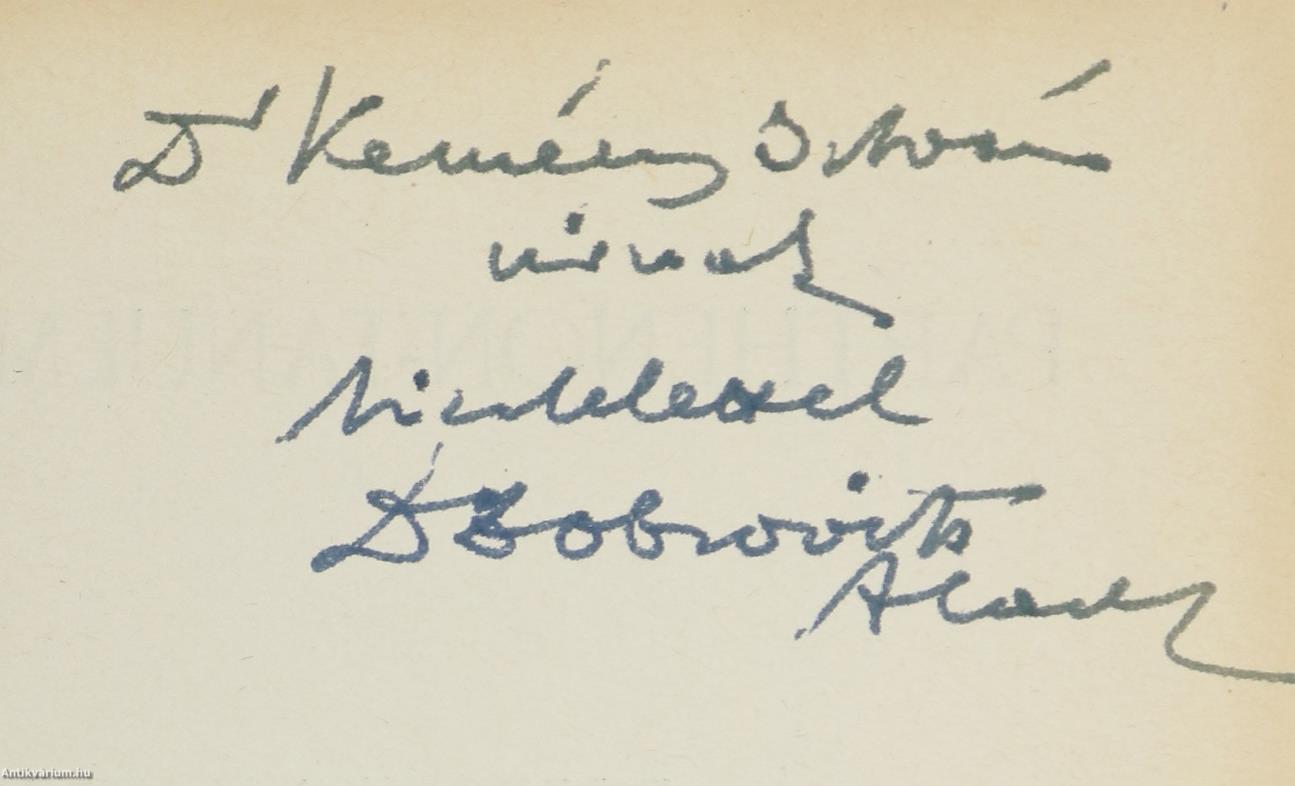 Dr Kemény István
úrnak
tisztelettel
Dr Dobrovits
Aladár
Antikvárium.hu